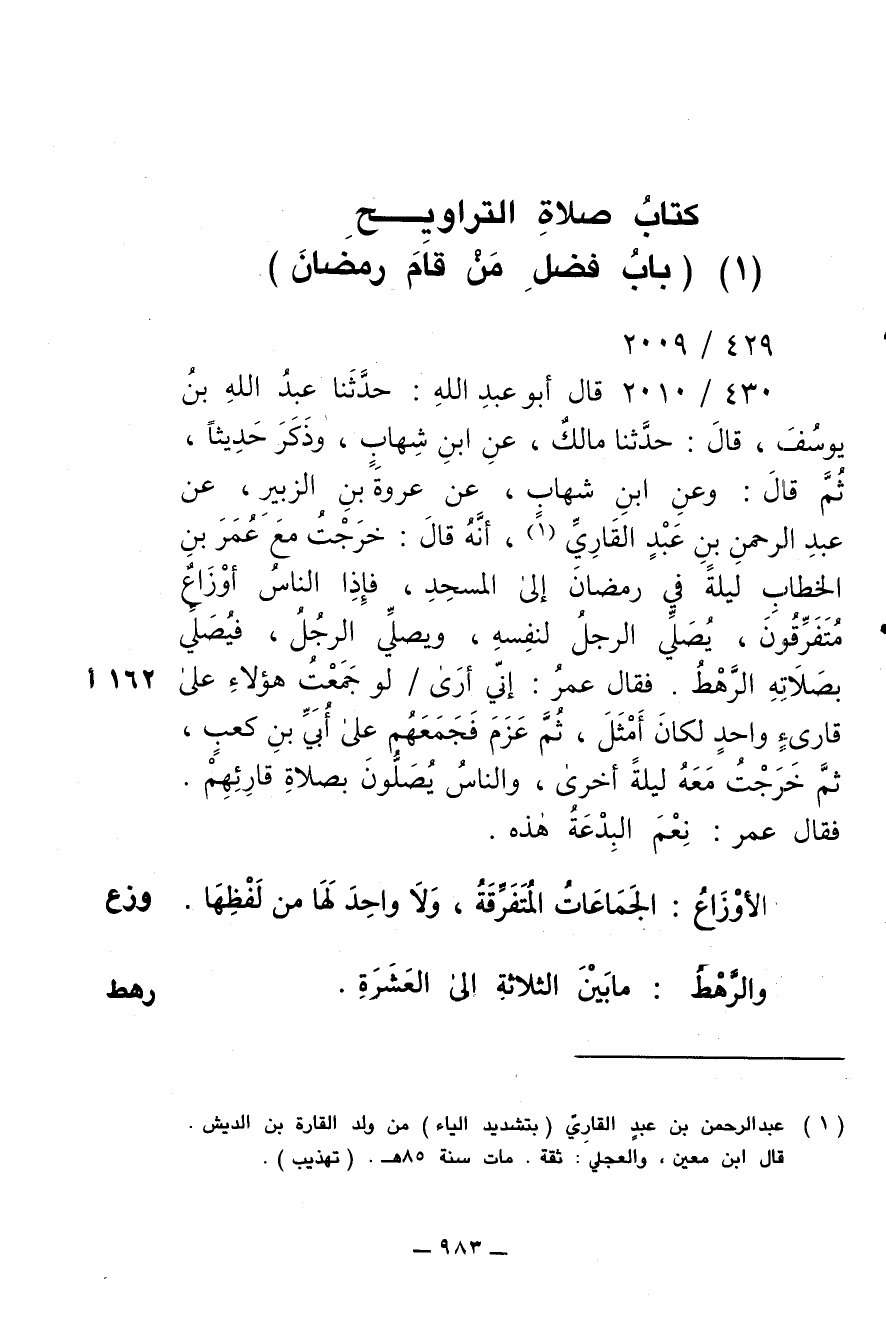 كتابُ صلاةِ التراويـــحِ
(١) ( بابُ فضلِ مَنْ قامَ رمضانَ )
٤٢٩ / ٢٠٠٩
٤٣٠ / ٢٠١٠ قال أبو عبدِ اللهِ : حدَّثَنا عبدُ اللهِ بنُ
يوسُفَ ، قالَ : حدَّثنا مالكٌ ، عنِ ابنِ شِهابٍ ، وذَكَرَ حَدِيثاً ،
ثُمَّ قالَ : وعنِ ابنِ شهابٍ ، عن عروةَ بنِ الزبير ، عن
عبدِ الرحمنِ بنِ عَبْدٍ القَارِيِّ (١) ، أنَّهُ قالَ : خرَجْتُ معَ عُمَرَ بنِ
الخطابِ ليلةً في رمضانَ إلىٰ المسجِدِ ، فإِذا الناسُ أوْزَاعٌ
مُتَفَرِّقُونَ ، يُصَلِّي الرجلُ لنفسِهِ ، ويصلِّي الرجُلُ ، فيُصَلِّي
بصَلَاتِهِ الرَّهْطُ . فقال عمرُ : إنّي أرَىٰ / لو جَمَعْتُ هؤلاءِ علىٰ ١٦٢ أ
قارىءٍ واحدٍ لكانَ أَمْثَلَ ، ثُمَّ عَزَمَ فَجَمَعَهُم علىٰ أُبَيِّ بنِ كعبٍ ،
ثمَّ خَرَجْتُ مَعَهُ ليلةً أخرىٰ ، والناسُ يُصَلُّونَ بصلاةِ قارِئِهِمْ .
فقال عمر : نِعْمَ البِدْعَةُ هٰذه .
الأوْزَاعُ : الجَمَاعَاتُ المُتَفَرِّقَةُ ، وَلَا واحِدَ لَهَا من لَفْظِهَا . وزع
والرَّهْطُ : مابَيْنَ الثلاثةِ الىٰ العَشَرَةِ . رهط
(١) عبدالرحمن بن عبدٍ القارِيّ (بتشديد الياء) من ولد القارة بن الديش .
قال ابن معين ، والعجلي : ثقة . مات سنة ٨٥هـ . (تهذيب) .
– ٩٨٣ –